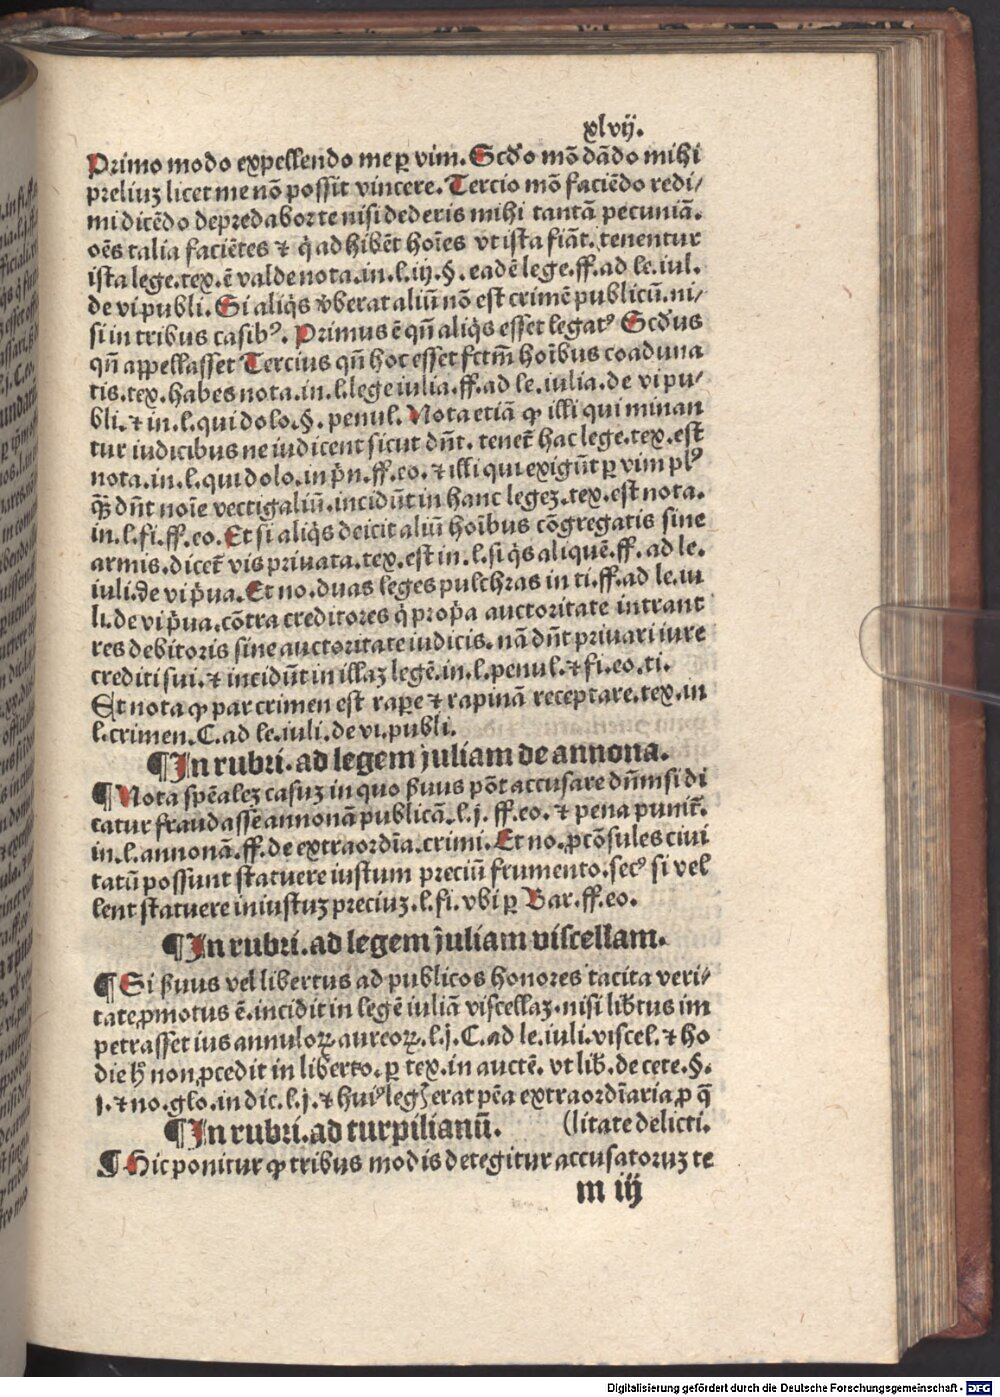 xlvij.
Primo modo expellendo me ꝑ vim. Scd̛o mō dādo mihi
preliuꝫ licet me nō possit vincere. Tercio mō faciēdo redi/
mi dicēdo depredabor te nisi dederis mihi tantā pecuniā.
oēs talia faciētes ⁊ q̇ adhibēt hoīes vt ista fiāt. tenentur
ista lege. tex. ē valde nota. in. l. iij. §. eadē lege. ff. ad le. iul.
de vi publi. Si aliq̇s v̛berat aliū nō est crimē publicū. ni/
si in tribus casibꝰ. Primus ē qn̄ aliq̇s esset legatꝰ Scd̛us
qn̄ appellasset Tercius qn̄ hoc esset fctm̄ hoībus coaduna
tis. tex. habes nota. in. l. lege iulia. ff. ad le. iulia. de vi pu/
bli. ⁊ in. l. qui dolo. §. penul. Nota etiā ꝙ illi qui minan
tur iudicibus ne iudicent sicut dn̄t. tenent̄ hac lege. tex. est
nota. in. l. qui dolo. in p̄n. ff. eo. ⁊ illi qui exigūt ꝑ vim plꝰ
q̄ꝫ dn̄t noīe vectigaliū. incidūt in hanc legeꝫ. tex. est nota.
in. l. fi. ff. eo. Et si aliq̇s deicit aliū hoībus cōgregatis sine
armis. dicet̄ vis priuata. tex. est in. l. si q̇s aliquē. ff. ad le.
iuli. de vi p̄ua. Et no. duas leges pulchras in ti. ff. ad le. iu
li. de vi p̄ua. cōtra creditores q̇ prop̄a auctoritate intrant
res debitoris sine auctoritate iudicis. nā dn̄t priuari iure
crediti sui. ⁊ incidūt in illaꝫ legē. in. l. penul. ⁊ fi. eo. ti.
Et nota ꝙ par crimen est raꝑe ⁊ rapinā receptare. tex. in
l. crimen. C. ad le. iuli. de vi. publi.
¶ In rubri. ad legem juliam de annona.
¶ Nota spēaleꝫ casuꝫ in quo ẜuus pōt accusare dn̄m si di
catur fraudasse annonā publicā. l. j. ff. eo. ⁊ pena punit̄.
in. l. annonā. ff. de extraordīa. crimi. Et no. ꝓcōsules ciui
tatū possunt statuere iustum preciū frumento. secꝰ si vel
lent statuere iniustuꝫ preciuꝫ. l. fi. vbi ꝑ Bar. ff. eo.
¶ In rubri. ad legem juliam viscellam.
¶ Si ẜuus vel libertus ad publicos honores tacita veri/
tate ꝓmotus ē. incidit in legē iuliā viscellaꝫ. nisi lib̄tus im
petrasset ius annuloꝝ aureoꝝ. l. j. C. ad le. iuli. viscel. ⁊ ho
die h̄ non ꝓcedit in liberto. ꝑ tex. in auctē. vt lib̄. de cete. §.
j. ⁊ no. glo. in dic. l. j. ⁊ huiꝰ leg̛ erat pēa extraordīaria ꝓ q̄
¶ In rubri. ad turpilianū. (litate delicti.
¶ Hic ponitur ꝙ tribus modis detegitur accusatoruꝫ te
m iij
Digitalisierung gefördert durch die Deutsche Forschungsgemeinschaft - DFG